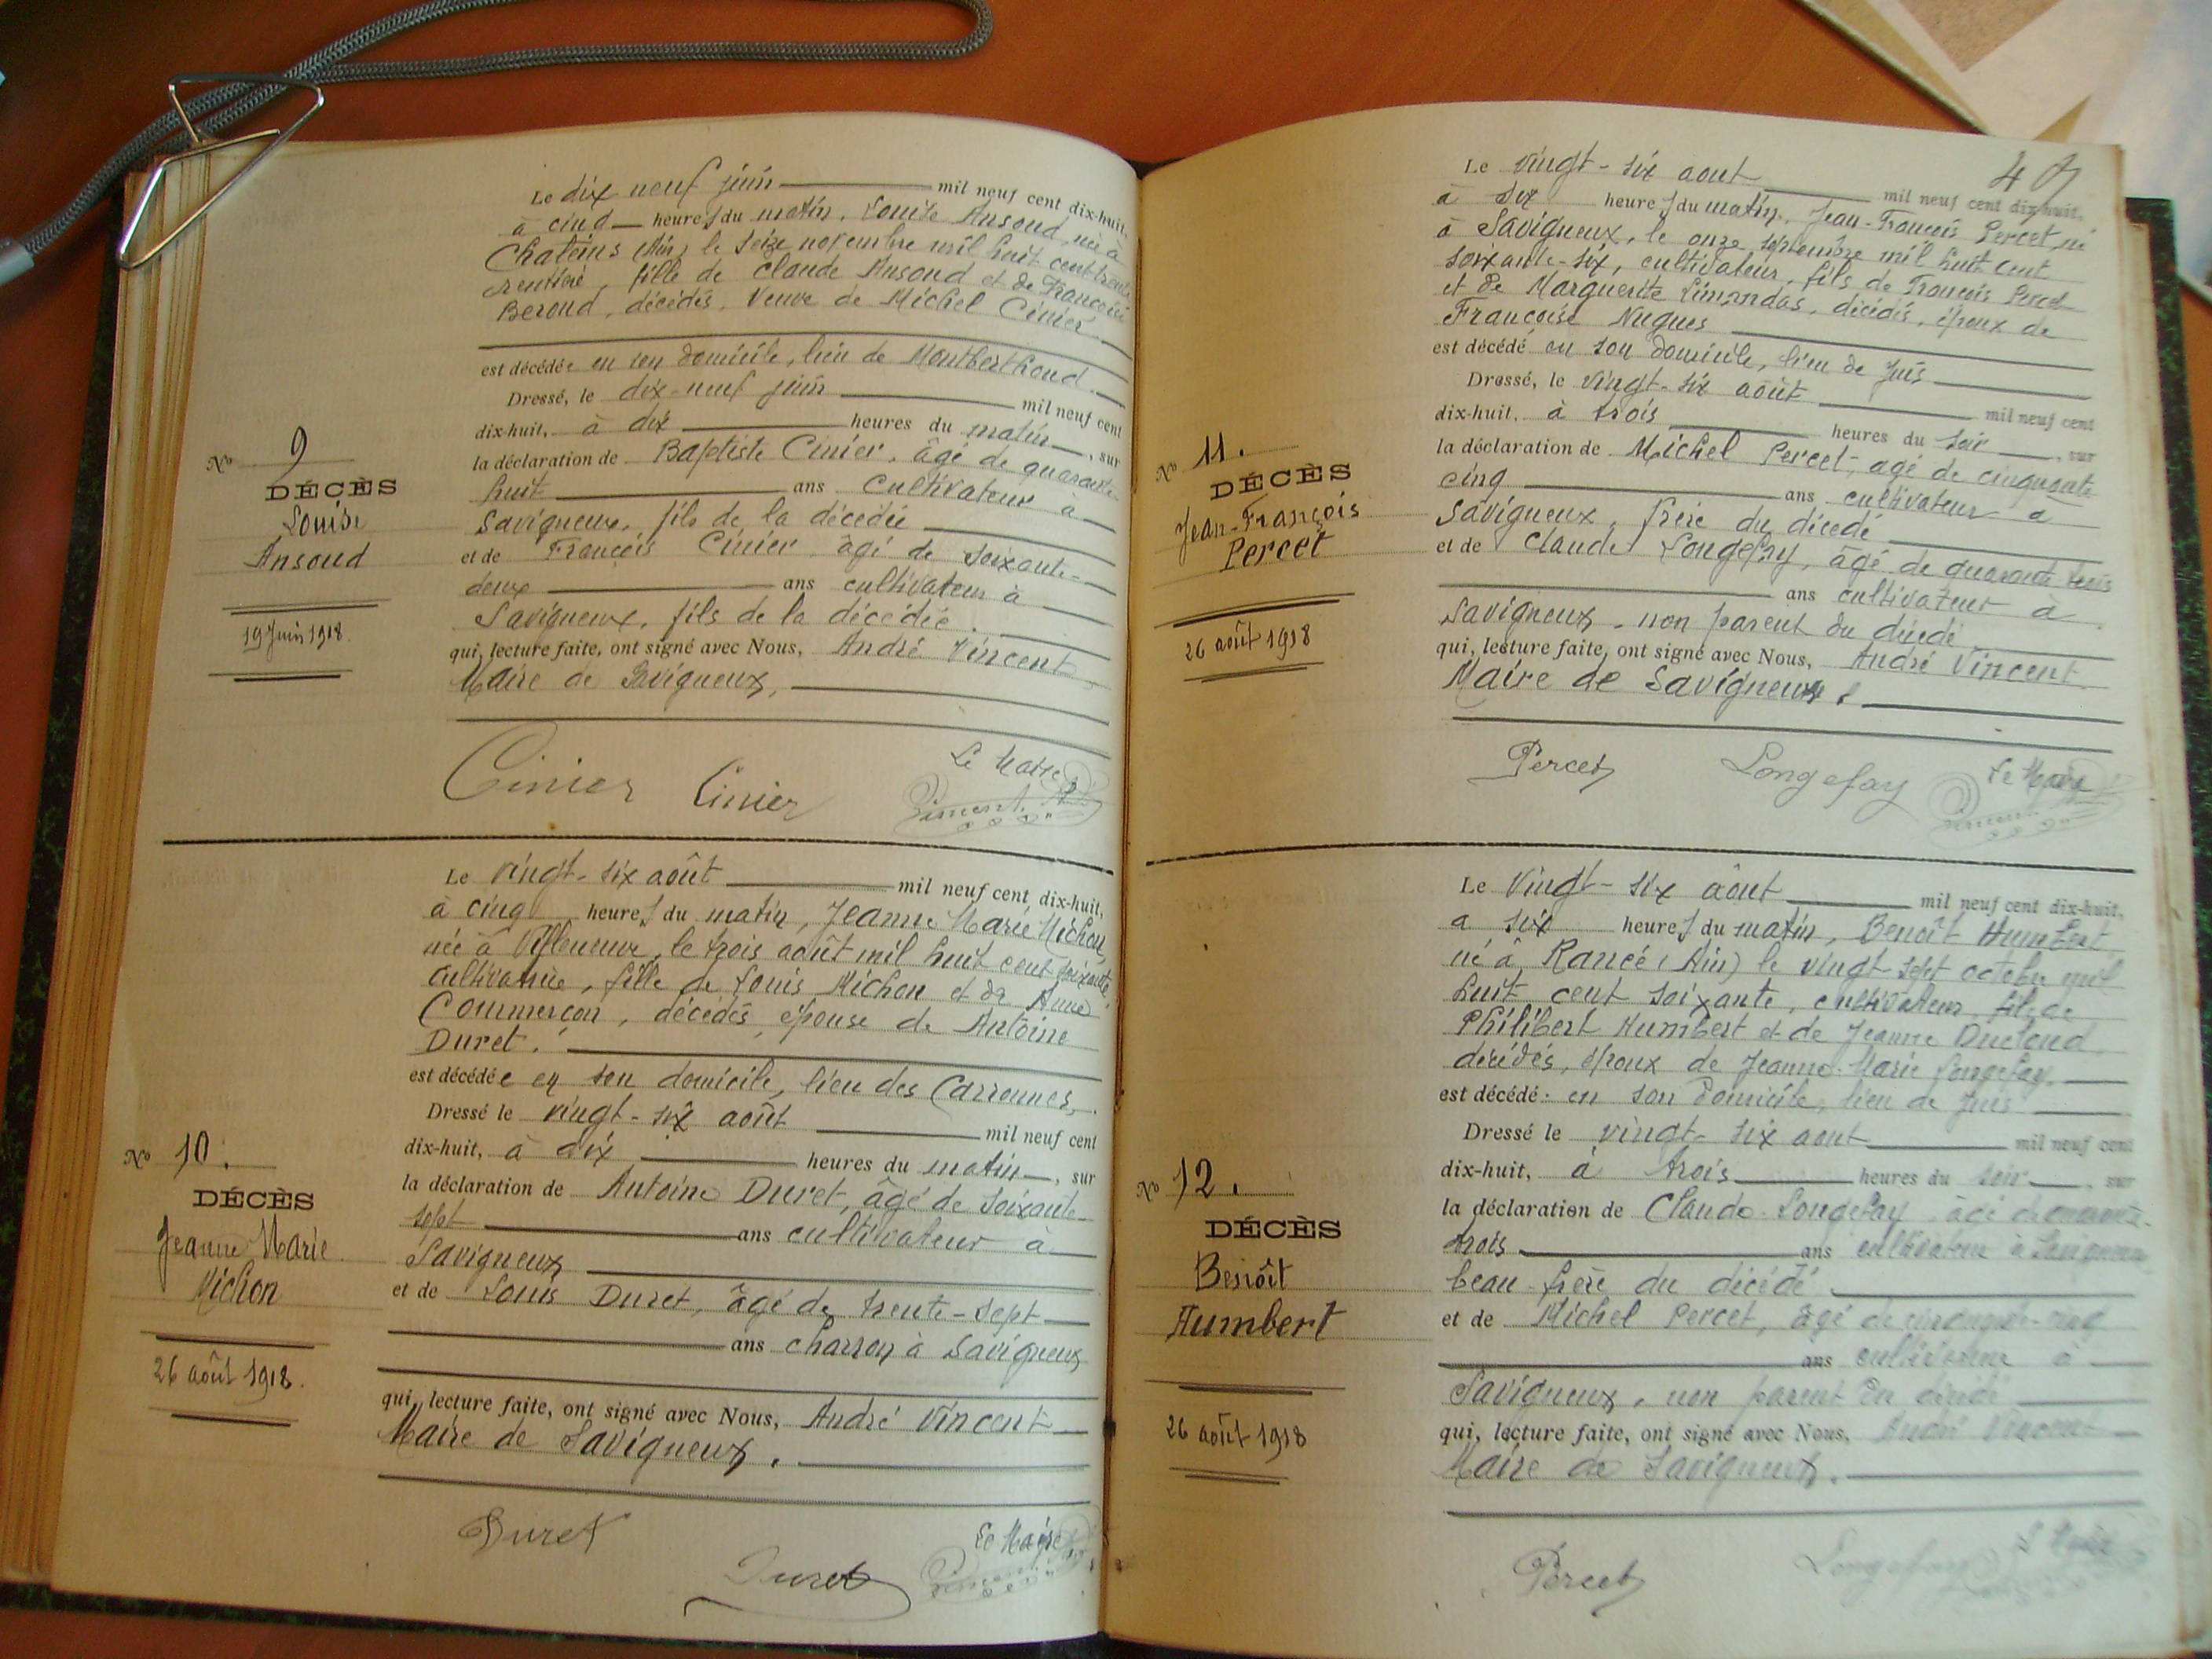 Le dix neuf juin mil neuf cent dix-huit,
à cinq heures du matin, Louise Ansoud, née à
Chaleins (Ain) le seize novembre mil huit cent trente
rentière, fille de Claude Ansoud et de Françoise
Beroud, décédés, Veuve de Michel Cinier
est décédée en son domicile, lieu de Montberthoud.
Dressé, le dix-neuf juin mil neuf cent
dix-huit, à dix heures du matin, sur
la déclaration de Baptiste Cinier, âgé de quarante-
huit ans cultivateur à
Savigneux, fils de la décédée
et de François Cinier, âgé de soixante-
deux ans cultivateur à
Savigneux, fils de la décédée.
qui, lecture faite, ont signé avec Nous, André Vincent
Maire de Savigneux,
No 9
DÉCÈS
Louise
Ansoud
19 Juin 1918.
Cinier Cinier Le Maire
Le vingt-six août mil neuf cent dix-huit,
à cinq heures du matin, Jeanne Marie Michon,
née à Villeneuve, le trois août mil huit cent soixante,
cultivatrice, fille de Louis Michon et de Anne
Commerçon, décédés, épouse de Antoine
Duret.
est décédée en son domicile, lieu des Carronnes,
Dressé le vingt-six août mil neuf cent
dix-huit, à dix heures du matin, sur
la déclaration de Antoine Duret, âgé de soixante-
sept ans cultivateur à
Savigneux
et de Louis Duret, âgé de trente-sept
ans charron à Savigneux
qui, lecture faite, ont signé avec Nous, André Vincent
Maire de Savigneux.
No 10.
DÉCÈS
Jeanne Marie
Michon
26 août 1918.
Duret Duret Le Maire
Le vingt-six aout mil neuf cent dix-huit,
à six heures du matin, Jean-François Percet, né
à Savigneux, le onze septembre mil huit cent
soixante-six, cultivateur, fils de François Percet
et de Marguerite Limandas, décédés, époux de
Françoise Nugues
est décédé en son domicile, lieu de Juis
Dressé, le vingt-six août mil neuf cent
dix-huit, à trois heures du soir, sur
la déclaration de Michel Percet, agé de cinquante
cinq ans cultivateur à
Savigneux, frère du décédé
et de Claude Longefay, âgé de quarante trois
ans cultivateur à
Savigneux, non parent du décédé
qui, lecture faite, ont signé avec Nous, André Vincent
Maire de Savigneux.
No 11.
DÉCÈS
Jean-François
Percet
26 août 1918
Percet Longefay Le Maire
Le Vingt-six âout mil neuf cent dix-huit,
a six heures du matin, Benoît Humbert
né à Rancé (Ain) le vingt-sept octobre mil
huit cent soixante, cultivateur, fils de
Philibert Humbert et de Jeanne
décédés, époux de Jeanne-Marie Longefay,
est décédé en son domicile, lieu de Juis
Dressé le vingt-six aout mil neuf cent
dix-huit, à trois heures du soir, sur
la déclaration de Claude Longefay âgé de quarante-
trois ans cultivateur à Savigneux
beau-frère du décédé
et de Michel Percet, âgé de cinquante-cinq
ans cultivateur à
Savigneux, non parent du décédé
qui, lecture faite, ont signé avec Nous, André Vincent
Maire de Savigneux.
No 12.
DÉCÈS
Benoît
Humbert
26 août 1918
Percet Longefay